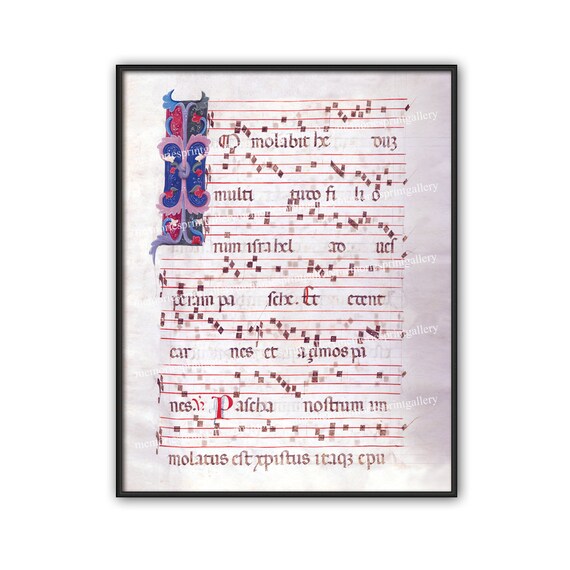 IM molabit he duz
multi tudo fi li o
rum israhel ad ves
peram pa sche. Et edent
car nes et açimos pa
nes. V. Pascha nostrum im
molatus est xpistus itaqꝫ epu